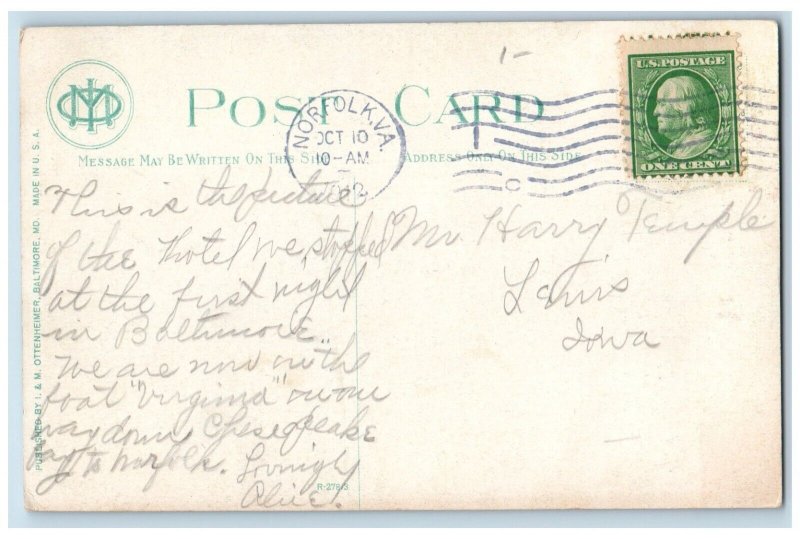 POST CARD
MESSAGE MAY BE WRITTEN ON THIS SIDE
ADDRESS ONLY ON THIS SIDE
NORFOLK, VA.
OCT 10
10-AM
U.S. POSTAGE
ONE CENT
1-
C
PUBLISHED BY I. & M. OTTENHEIMER, BALTIMORE, MD. MADE IN U.S.A.
This is the picture
of the hotel we stopped
at the first night
in Baltimore.
We are now on the
boat "Virginia" on our
way down Chesepeake
bay to Norfolk. Lovingly
Alice.
Mr Harry Temple
Iowa
R-27813